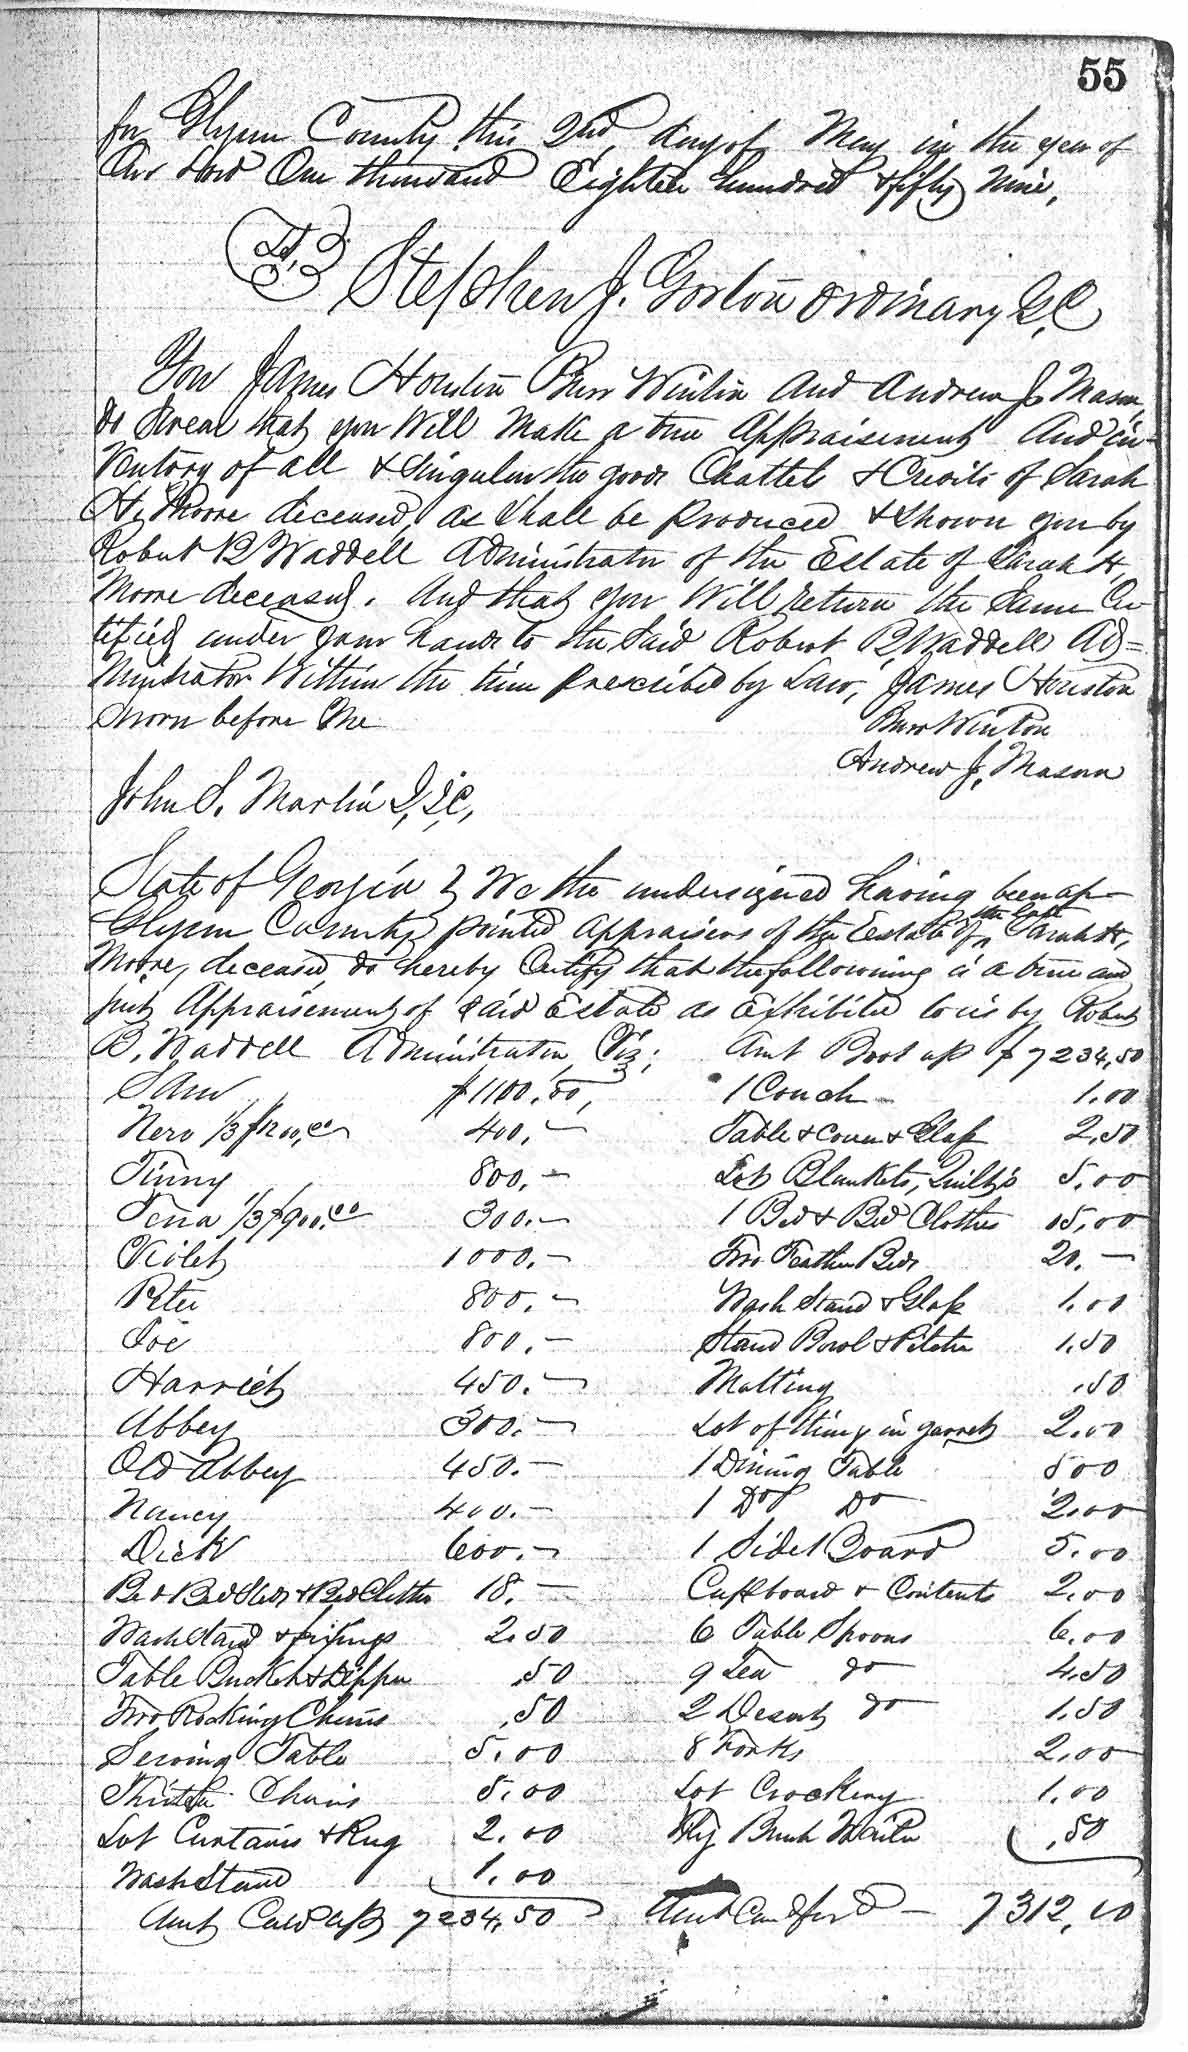 55
for Glynn County this 2nd, day of May in the year of
Our Lord One thousand Eighteen hundred & fifty Nine,
Stephen J. Gorton Ordinary G, C
You James Houston Burr Winton And Andrew J. Mason,
do Swear that you Will Make a true Appraisement And in-
ventory of all & Singular the goods Chattels & Credits of Sarah
H, Moore deceased, as Shall be produced & Shown you by
Robert B Waddell Administrator of the Estate of Sarah H,
Moore deceased. And that you Will return the Same Cer
tified under your hands to the Said Robert B, Waddell Ad=
ministrator Within the time prescribed by Law, James Houston
Sworn before Me
Burr Winton
Andrew J, Mason
John S. Martin J, I, C,
State of Georgia } We the undersigned having been ap-
Glynn County } pointed Appraisers of the Estate of the Estate Sarah H,
Moore, deceased, do hereby Certify that the following is a true and
just Appraisement of Said Estate as Exhibited to us by Robert
B. Waddell Administrator, Viz; Amt Brot up $ 7234,50
Sam $1100.00, 1 Couch 1.00
Nero 1/3 $1200,00 400,— Table & Cover & Glass 2,50
Jinny 800,— Lot Blankets, Quilts 5,00
Tena 1/3 $900.00 300.— 1 Bed & Bed Clothes 15,00
Violet 1000.— Two Feather Beds 20.—
Peter 800.— Wash Stand & Glass 1.00
Joe 800.— Stand Bowl & Pitcher 1.50
Harriet 450.— Matting .50
Abbey 300.— Lot of things in garret 2.00
Old Abbey 450.— 1 Dining Table 500
Nancy 400.— 1 Do Do 2.00
Dick 600.— 1 Side Board 5.00
Bed Bed Sted & Bed Clothes 18.— Cuppboard & Contents 2.00
Wash Stand & fixings 2.50 6 Table Spoons 6.00
Table Bucket & Dipper ,50 9 Tea do 4.50
Two Rocking Chairs ,50 2 Desert do 1.50
Serving Table 5.00 8 Forks 2.00
Thirteen Chairs 5.00 Lot Crockery 1.00
Lot Curtains & Rug 2.00 Fly Brush Waiter ,50
Wash Stand 1.00
Amt Card up 7234,50 Amt Card ford — 7312,00